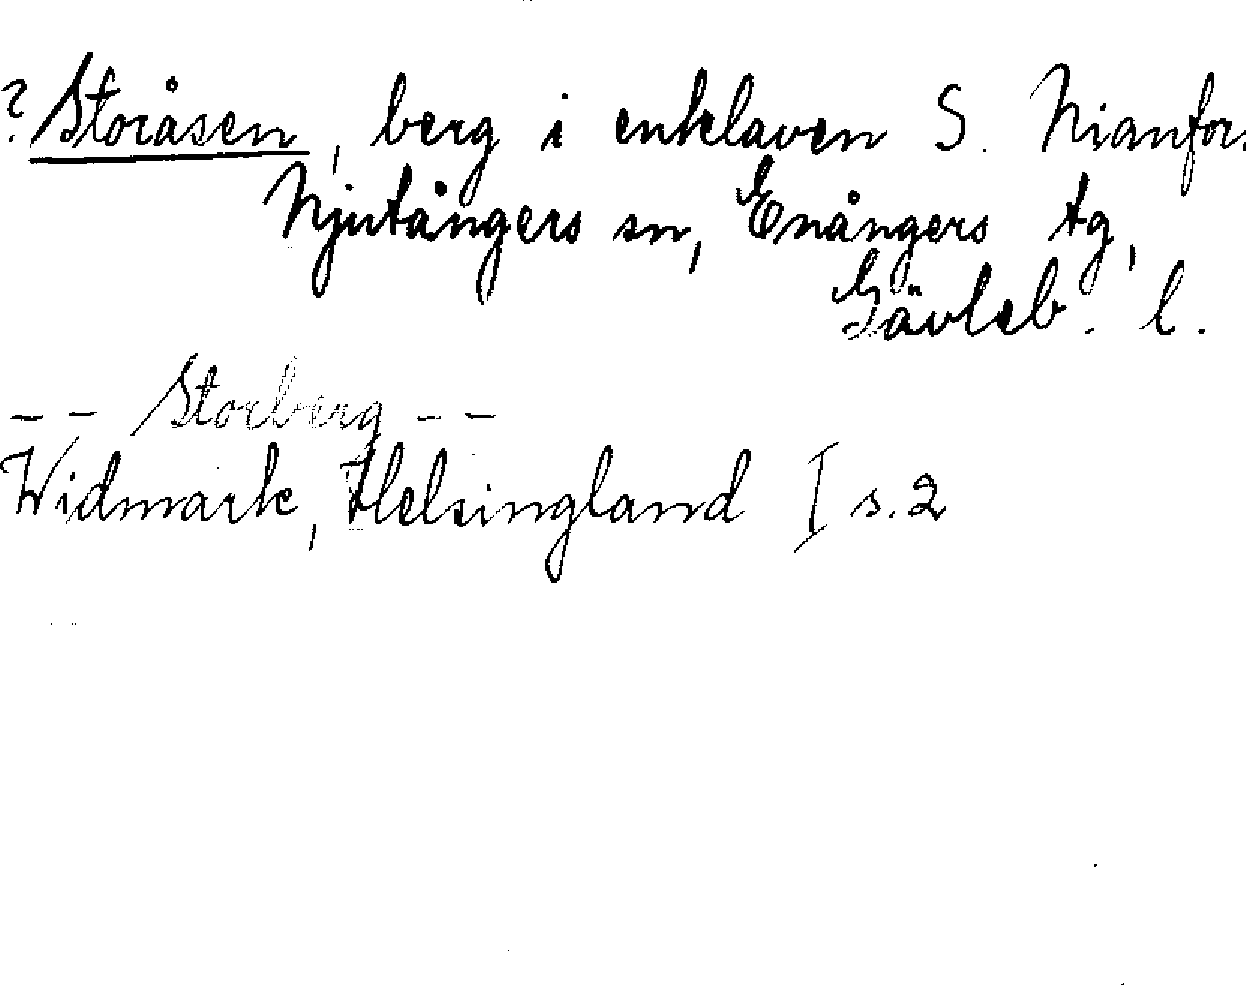 ? Storåsen, berg i enklaven S. Nianfor
Njutångers sn, Enångers tg,
Gävleb. l.
-- Storberg --
Widmark, Helsingland I s. 2